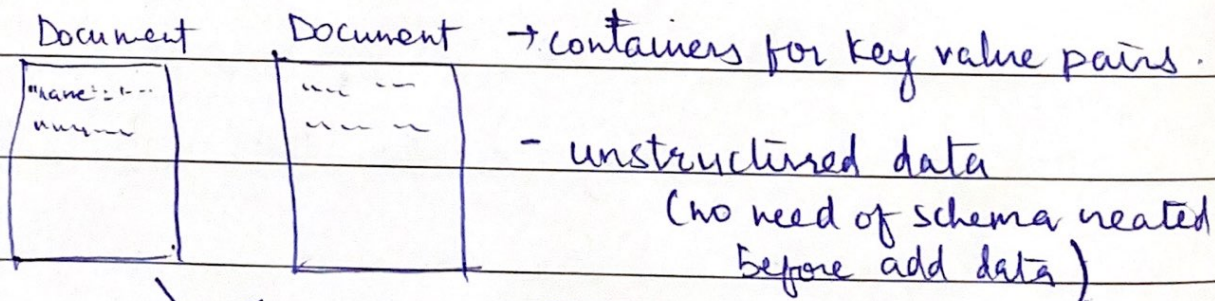 Document Document → containers for key value pairs.
"name":"---
- unstructured data
(no need of schema created
before add data)